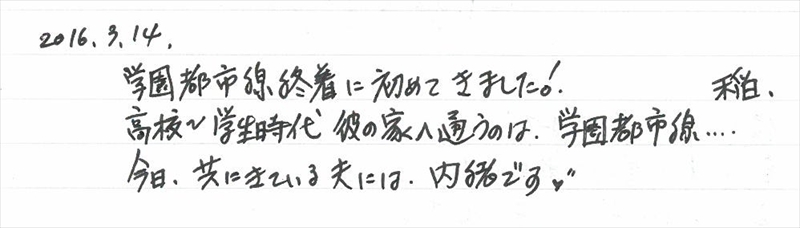 2016.3.14.
学園都市線終着に初めてきました! 稲、
高校~学生時代 彼の家へ通うのは、学園都市線‥‥
今日、共にきている夫には、内緒です♥"